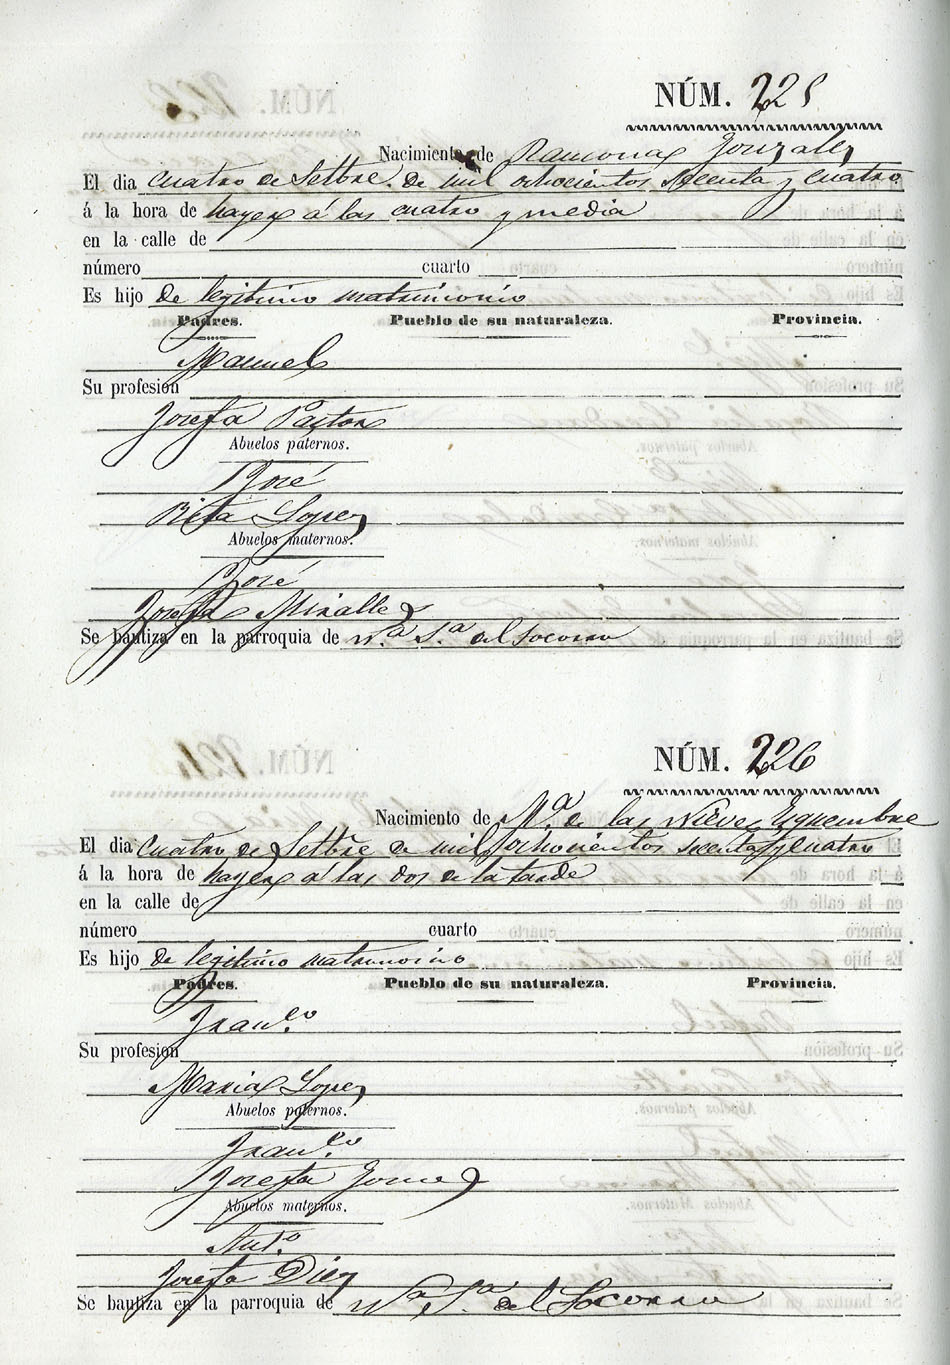 NÚM. 225
Nacimiento de Ramona Gonzalez
El dia cuatro de Setbre. de mil ochocientos Secenta y cuatro
á la hora de hayer á las cuatro y media
en la calle de
número cuarto
Es hijo de legitimo matrimonio
Padres. Pueblo de su naturaleza. Provincia.
Manuel
Su profesion
Josefa Pastor
Abuelos paternos.
José
Rita Lopez
Abuelos maternos.
José
Josefa Miralles
Se bautiza en la parroquia de Nª Sª del Socorro
NÚM. 226
Nacimiento de Mª. de las Nieves Esquembre
El dia cuatro de Setbre de mil ochocientos secenta y cuatro
á la hora de hayer a las dos de la tarde
en la calle de
número cuarto
Es hijo de legitimo matrimonio
Padres. Pueblo de su naturaleza. Provincia.
Franco.
Su profesión
Maria Lopez
Abuelos paternos.
Franco.
Josefa Gomez
Abuelos maternos.
Anto.
Josefa Diez
Se bautiza en la parroquia de Nª Sª del Socorro